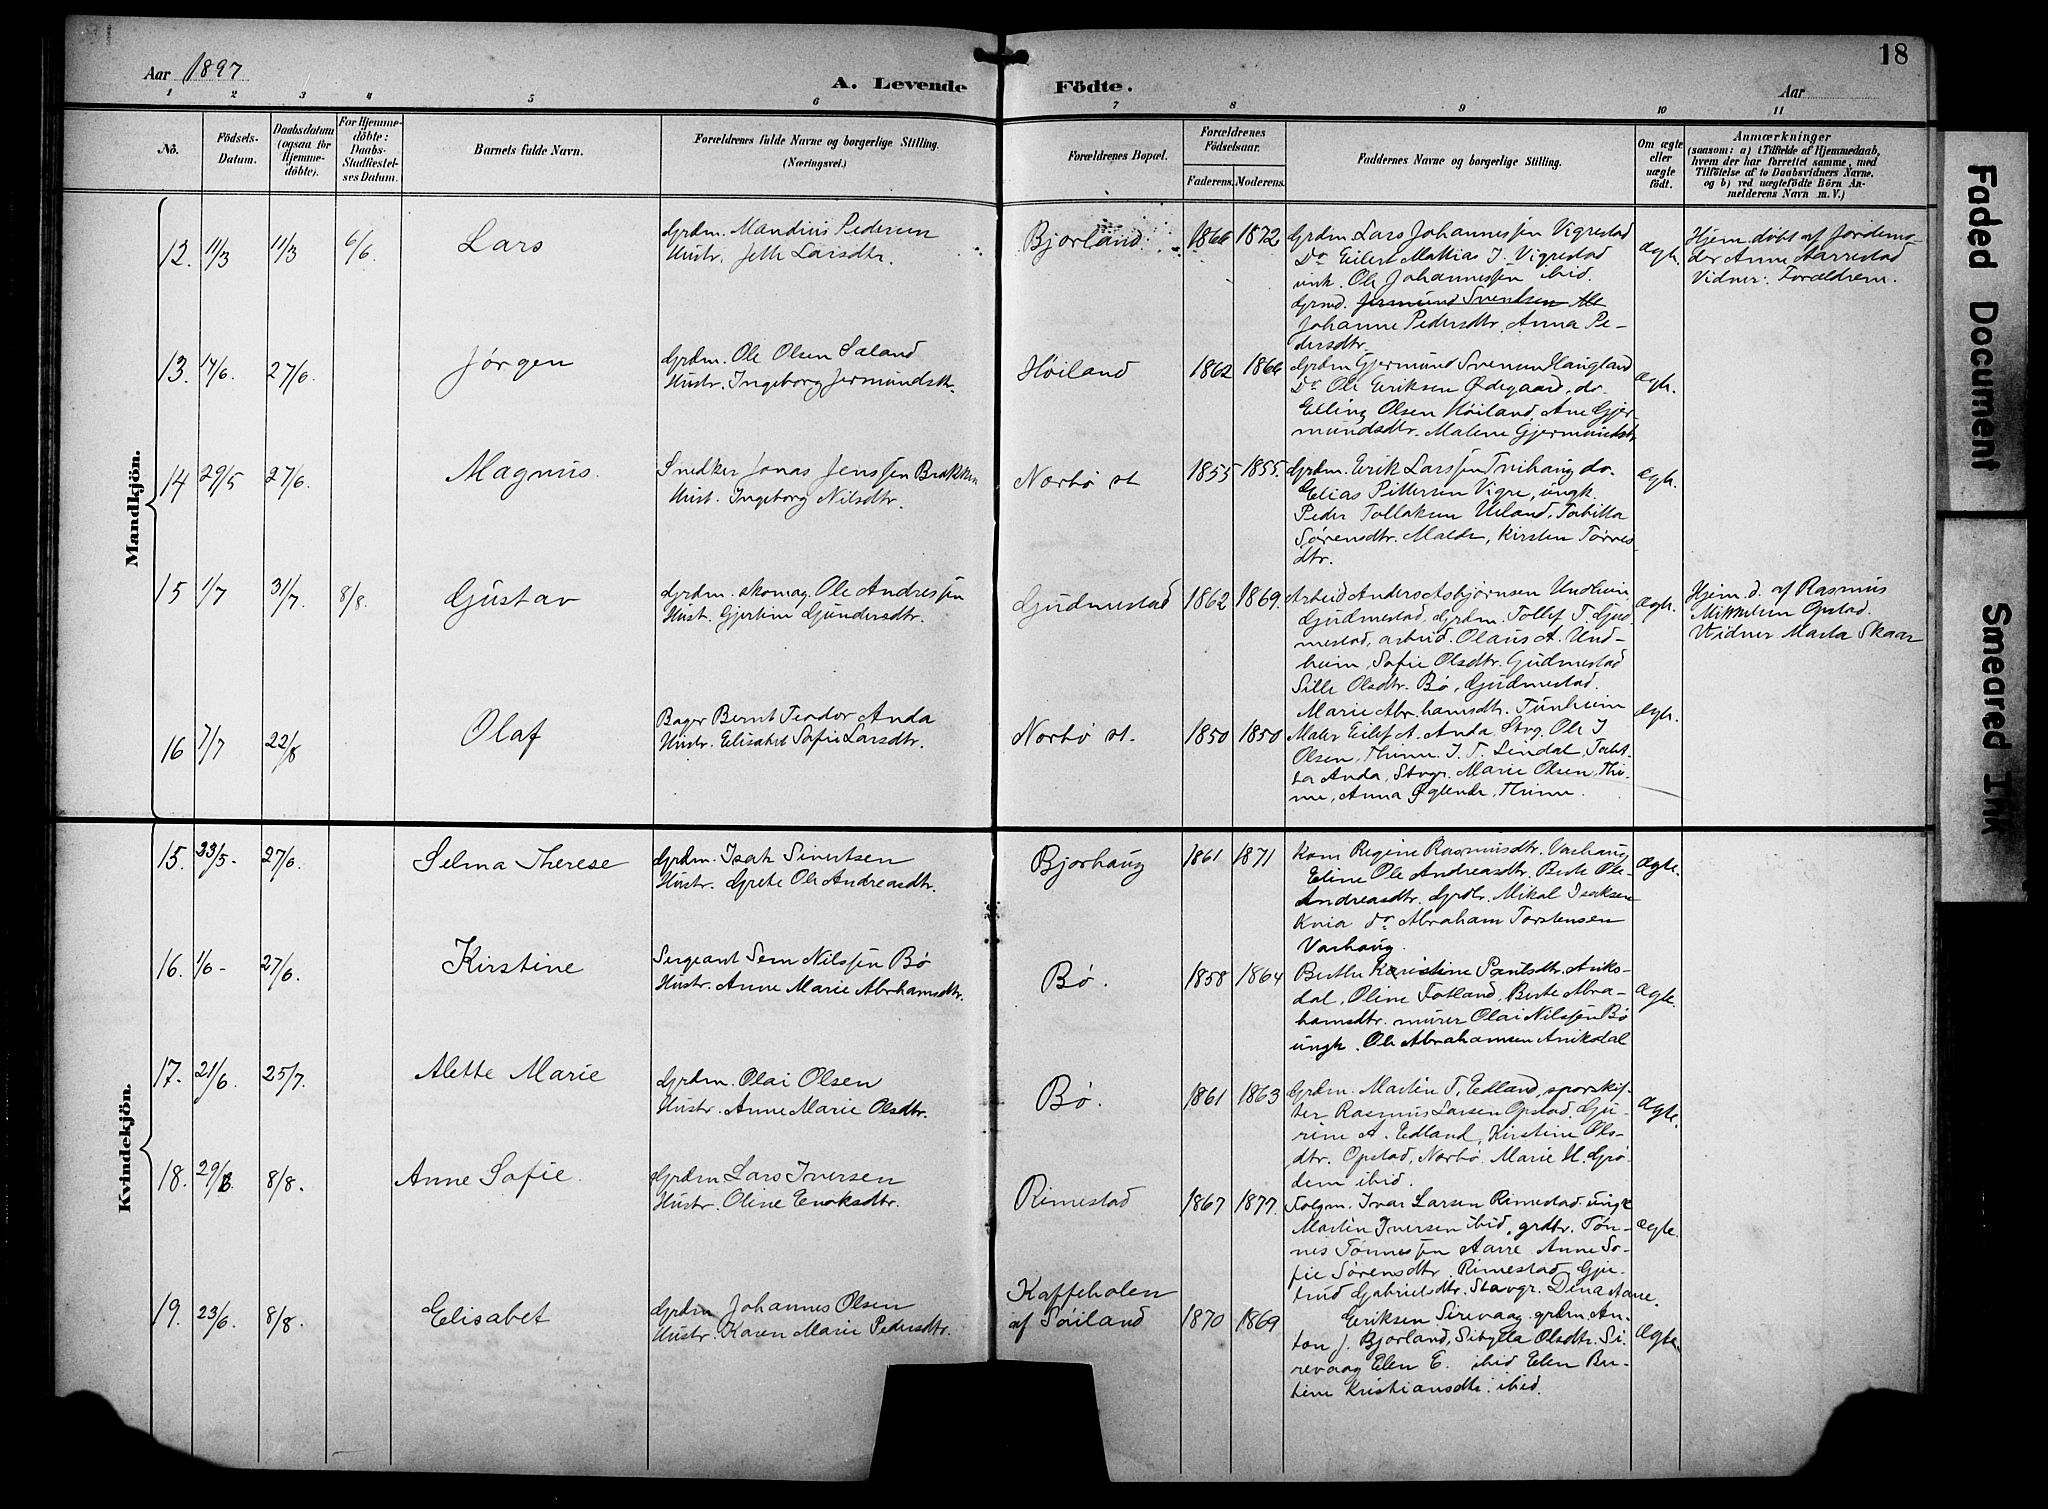 18
Aar 1897
A. Levende Födte.
Aar
1 2 3 4 5 6 7 8 9 10 11
No.
Födsels-
Datum.
Daabsdatum
(ogsaa for
Hjemme-
döbte).
For Hjemme-
döbte:
Daabs-
Stadfæstel-
ses Datum.
Barnets fulde Navn.
Forældrenes fulde Navne og borgerlige Stilling.
(Næringsvei.)
Forældrenes Bopæl.
Forældrenes
Födselsaar.
Faderens. Moderens.
Faddernes Navne og borgerlige Stilling.
Om ægte
eller
uægte
födt.
Anmærkninger
(saasom: a) i Tilfælde af Hjemmedaab,
hvem der har forrettet samme, med
Tilföielse af to Daabsvidners Navne.
og b) ved uægtefödte Börn An-
melderens Navn m. V.)
Mandkjön.
12. 11/3 11/3 6/6. Lars
Grdm. Mandius Pedersen
Hustr. Jette Larsdtr.
Bjorland. 1866 1872
Grdm. Lars Johannessen Vigrestad
Do Eilert Mattias J. Vigrestad
unk. Ole Johannessen ibid.
Grmd. Jermund Svendsen
Johanne Pedersdtr. Anna Pe-
dersdtr.
ægte.
Hjem. døbt af Jordemo-
der Anne Aarrestad
Vidner: Forældrene.
13. 17/6. 27/6. Jørgen
Grdm. Ole Olsen Sæland
Hustr. Ingeborg Jermundsdtr.
Høiland 1862 1866
Grdm Gjermund Svensen Haugland
Do Ole Eriksen Ødegaard, do.
Elling Olsen Høiland, Ane Gjer-
mundsdtr. Malene Gjermundsdtr
ægte.
14 29/5 27/6. Magnus.
Snedker Jonas Jenssen Brakken
Hust. Ingeborg Nilsdtr.
Nærbø st 1855 1855.
Grdm. Erik Larssen Tvihaug do.
Elias Pittersen Vigre, ungk.
Peder Tollaksen Ueland, Tobitta
Sørensdtr. Malde, Kirsten Tørres-
dtr.
ægte.
15 1/7 31/7. 8/8. Gustav
Grdm. skomag. Ole Andressen
Hust. Gjertine Gundersdtr.
Gudmestad 1862 1869.
Arbeid Anders Asbjørnsen Undheim
Gudmestad, Grdm. Tollef T. Gud-
mestad, arbeid. Olaus A. Und-
heim, Sofie Olsdtr. Gudmestad
Sille Olsdtr. Bø, Gudmestad.
Marie Abrahamsdtr. Tunheim
ægte.
Hjem. d. af Rasmus
Mikkelsen Opstad.
Vidner Marta Skaar
16 7/7 22/8 Olaf
Bager Bernt Teodor Anda
Hustr. Elisabet Sofie Larsdtr.
Nærbø st. 1850 1850
Maler Eilef A. Anda Stvg. Ole J
Olsen, Thime. J. T. Lindal, Tobit-
ta Anda, Stvgr. Marie Olsen, Thi-
me, Anna Øglende, Thime.
ægte.
Kvindekjön.
15. 23/5- 27/6. Selma Therese
Grdm. Isak Sivertsen
Hustr. Grete Ole Andreasdtr.
Bjorhaug 1861 1871
Kom Regine Rasmusdtr. Varhaug
Eline Ole Andreasdtr. Berte Ole
Andreasdtr. Grdbr. Mikal Isaksen
Kvia do. Abraham Torstensen
Varhaug.
ægte.
16. 1/6- 27/6. Kirstine
Sergeant Sem Nilssen Bø
Hustr. Anne Marie Abrhamsdtr.
Bø. 1858 1864
Berthe Karistine Paulsdtr. Aniks-
dal, Oline Fotland, Berte Abra-
hamsdtr. murer Olai Nilssen Bø
ungk. Ole Abrahamsen Aniksdal
ægte.
17. 21/6. 25/7. Alette Marie
Grdm. Olai Olsen
Hustr. Anne Marie Olsdtr.
Bø. 1861 1863
Grdm Martin T. Edland, sporskif-
ter Rasmus Larsen Opstad, Gu-
rine A. Edland, Kirstine Ols-
dtr. Opstad, Nærbø. Marie H. Grø-
dem ibid.
ægte.
18. 29/6. 8/8. Anne Sofie.
Grdm Lars Iversen
Hustr. Oline Enoksdtr.
Rimestad 1867 1877.
Folgm. Ivar Larsen Rimestad. ungk
Martin Iversen ibid, grdbr. Tøn-
nes Tønnessen Aarre Anne So-
fie Sørensdtr. Rimestad, Gju-
trud Gabrielsdtr. Stavgr. Dina Aane.
ægte.
19. 23/6. 8/8. Elisabet
Grdm Johannes Olsen
Hustr. Karen Marie Pedersdtr.
Kaffeholen
af Søiland 1870 1869
Eriksen Sirevaag, grdm An-
ton J. Bjorland, Sibylla Olsdtr. Si-
revaag Elen E. ibid Elen Ber-
tine Kristiansdtr. ibid.
ægte.
Faded Document
Smeared Ink